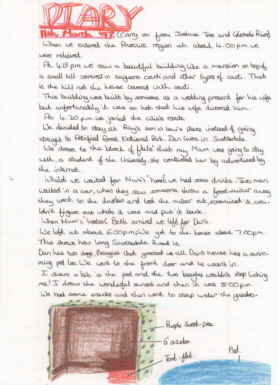 DIARY
11th March '97 (Carry on from Joshua Tree and Colorado River)
When we entered the Phoenix region at about 4.00pm we
were relieved.
At 4.15 pm we saw a beautiful building like a mansion on top of
a small hill covered in saguaro cacti and other types of cacti. That
is the hill not the house covered with cacti.
This building was built by someone as a wedding present for his wife
but unfortunately it was so hot that his wife divorced him.
At 4.20 pm we joined the cities roads.
We decided to stay at Ray's son in law's place instead of going
straight to Petrified Forest National Park. Dan lives in Scottsdale.
We drove to the 'block of flats' which my Mum was going to stay
with, a student of the University, she contacted her by advertised by
the internet.
Whilst we waited for Mum's friend we had some drinks. Two men
waited in a car, when they saw someone drawn a food-mixer away
they went to the dustbin and took the mixer out, examined it, could
n't figure was what it was and put it back.
When Mum's friend Beth arrived we left for Dan's.
We left at about 6.00pm. We got to the house about 7.00pm.
This drive was long Scottsdale Road is.
Dan has two dogs, beagles that greeted us all. Dan's house has a swim-
ming pool too. We went to the front door and he wasn't in.
I swam a bit in the pool and the two beagles wouldn't stop licking
me! I drew the wonderful sunset and then it was 8.00 pm.
We had some snacks and then went to sleep under the gazebo.
Purple Sweet-pea
Gazebo
Tent-
Pool